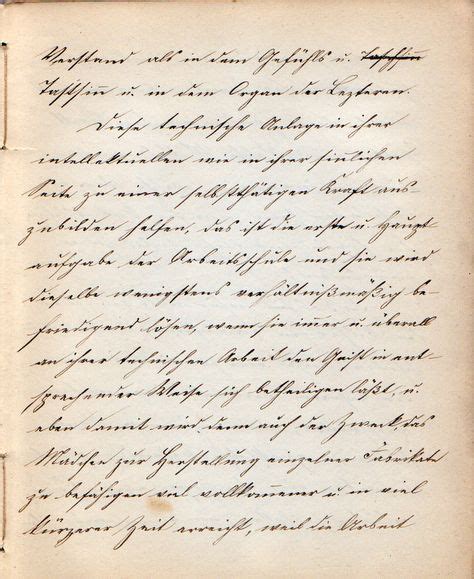 Verstand als in dem Gefühls u. Tastsinn
Tastsinn u. in dem Organ der Lezteren.
Diese technische Anlage in ihrer
intellektuellen wie in ihrer sinlichen
Seite zu einer selbstthätigen Kraft aus-
zubilden helfen, das ist die erste u. Haupt-
aufgabe der Arbeitsschule und sie wird
dieselbe wenigstens verhältnißmäßig be-
friedigend lösen, wenn sie imer u. überall
an ihrer technischen Arbeit den Geist in ent-
sprechender Weise sich betheiligen läßt, u.
eben damit wird denn auch der Zweck, das
Mädchen zur Herstellung einzelner Fabrikate
zu befähigen viel vollkommener u. in viel
kürzerer Zeit erreicht, weil die Arbeit